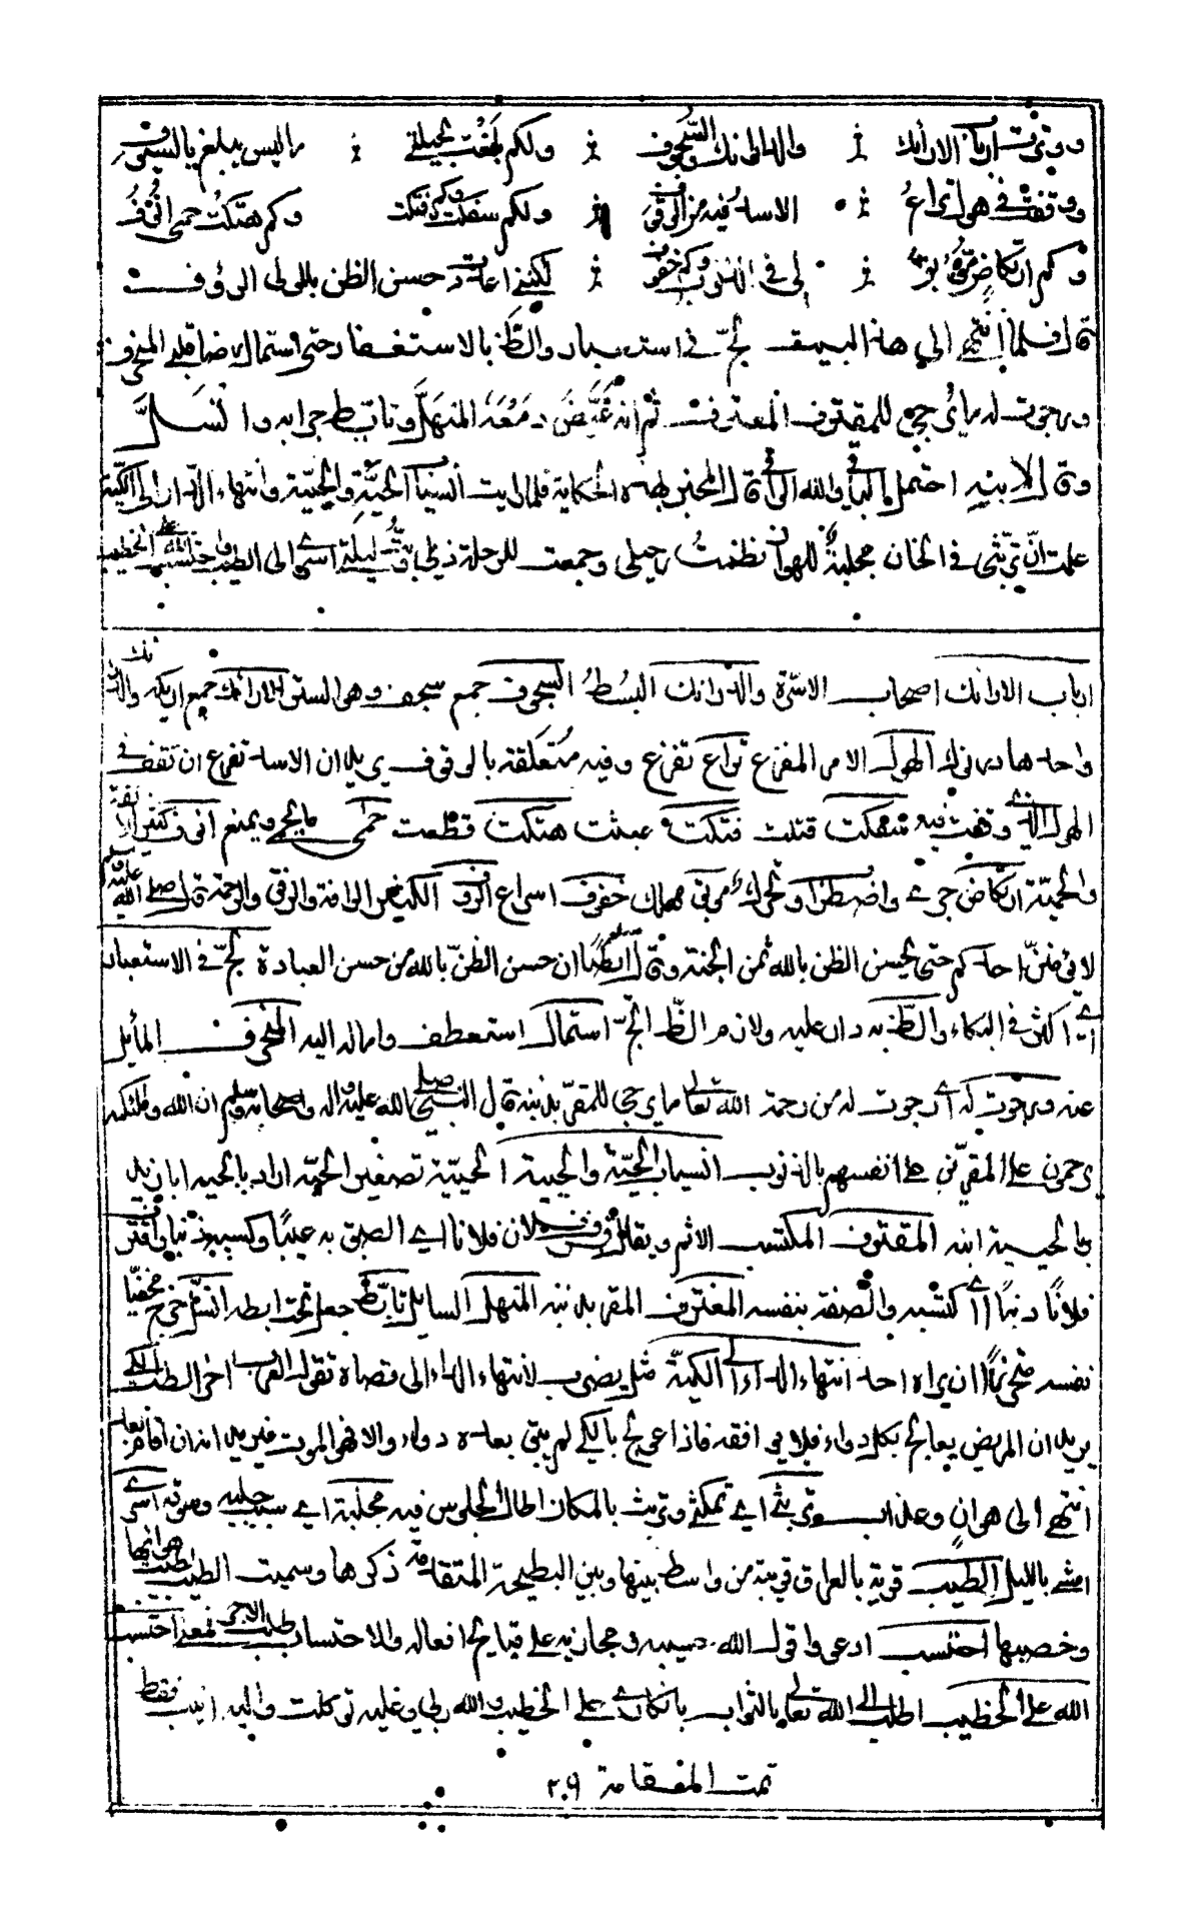 ودونت ارباب الارائك ∴ والدرانك والسجوف ∴ ولكم بلغت بحيلتي ∴ ما ليس يبلغ بالسيوف
ووقفت في هول تراع ∴ الاسد فيه من الوقوف ∴ ولكم سفكت وكم فتكت وكم هتكت حمى انوف
وكم ارتكاض موبق ∴ لي في الذنوب وكم خفوف ∴ لكنني اعددت حسن الظن بالمولى الرؤف
قال فلما انتهى الى هذا البيت لج في الاستعبار والظ بالاستغفار حتى استمال رضا قلبي المنحرف
ورجوت له ما يرجى للمقترف المعترف ثم انه غيض دمعه المنهل وتابط جرابه وانسل
وقال لابنه احتمل الباقي والله الواقي قال المخبر بهذه الحكاية فلما رايت انسياب الحية والحيية وانتهاء الداء الى الكية
علمت ان تريثي في الخان مجلبة للهوان فضممت رحيلي وجمعت للرحلة ذيلي وبت ليلتي اسرى الى الطيب واحتسب الله على الخطيب
ارباب الارائك اصحاب الاسرة والدرانك البسط السجوف جمع سجف وهو الستر الارائك جمع اريكة والدرانك
واحدها درنوك الهول الامر المفزع تراع تفزع وفيه متعلقة بالوقوف يريد ان الاسد تفزع ان تقف في
الهول الذي وقفت فيه سفكت قتلت فتكت عبثت هتكت قطعت حمى ما يحمى ويمنع انوف كثير الانفة
والحمية ارتكاض جري واضطراب وتحرك موبق مهلك خفوف اسراع الرؤف الكثير الرافة والرفق والرحمة قال صلى الله عليه وسلم
لا يموتن احدكم حتى يحسن الظن بالله ثمن الجنة وقال ايضا ان حسن الظن بالله من حسن العبادة لج في الاستعبار
اي اكثر في البكاء والظ به دار عليه ولازم الظ الج استمال استعطف واماله اليه المنحرف المائل
عنه ورجوت له اي رجوت له من رحمة الله تعالى ما يرجى للمقر بذنبه قال النبي صلى الله عليه واله واصحابه وسلم ان الله وملئكته
يرحمون على المقرين على انفسهم بالذنوب انسياب الحية والحيية الحيية تصغير الحية اراد بالحية ابا زيد
وبالحيية ابنه المقترف المكتسب الاثم ويقال قرف فلان فلانا اي الصق به عيبا وكسبه ذنبا واقترف
فلان ذنبا اي اكتسبه والصقه بنفسه المعترف المقر بذنبه المنهل السايل تابط جعل تحت ابطه انسل خرج مخفيا
نفسه متحرزا ان يراه احد انتهاء الداء الى الكية مثل يضرب لانتهاء الداء الى اقصاه تقول العرب اخر الطب الكي
يريد ان المريض يعالج بكل دواء فلا يوافقه فاذا عولج بالكي لم يبق بعده دواء والا فهو الموت فيريد انه ان اقام بعد
انتهى الى هوان وعذاب تريثي اي تمكثي وتريث بالمكان اطال الجلوس فيه مجلبة اي سبب جلبه وسوقه اسرى
امشي بالليل الطيب قرية بالعراق قريبة من واسط بينها وبين البطيحة المتقدمة ذكرها وسميت الطيب لطيب هوائها
وخصبها احتسب ادعى واقول الله حسيبه ومجازيه على قبايح افعاله والاحتساب طلب الاجر فمعنى احتسب
الله على الخطيب اطلب الى الله تعالى بالثواب بانكاري على الخطيب والله ربي وعليه توكلت واليه انيب فقط
تمت المقامة ٢٠٩